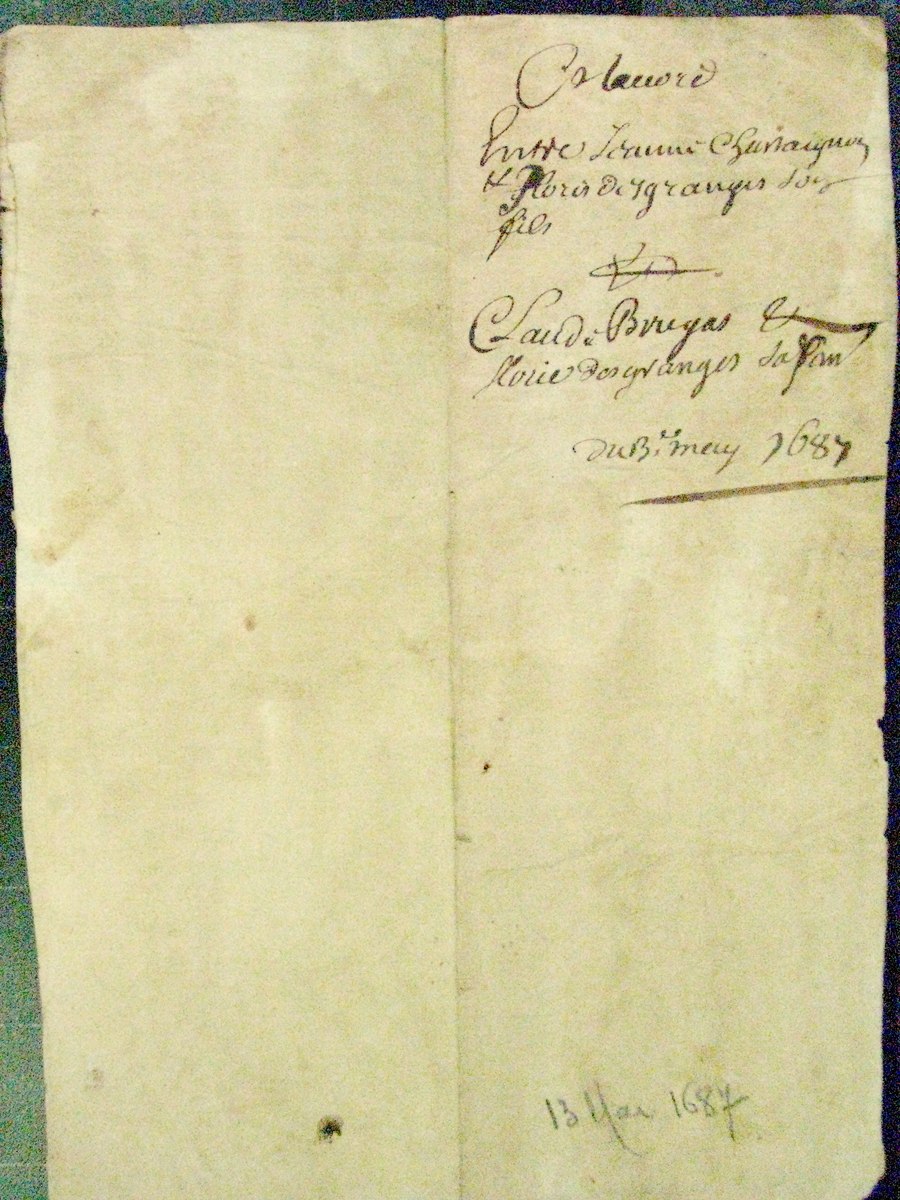 Entre Jeanne Chastaignon
et Floris Desgranges son
fils
Et
Claude Brugas &
Florie Desgranges sa fam
Du 13e may 1687
13 Mai 1687